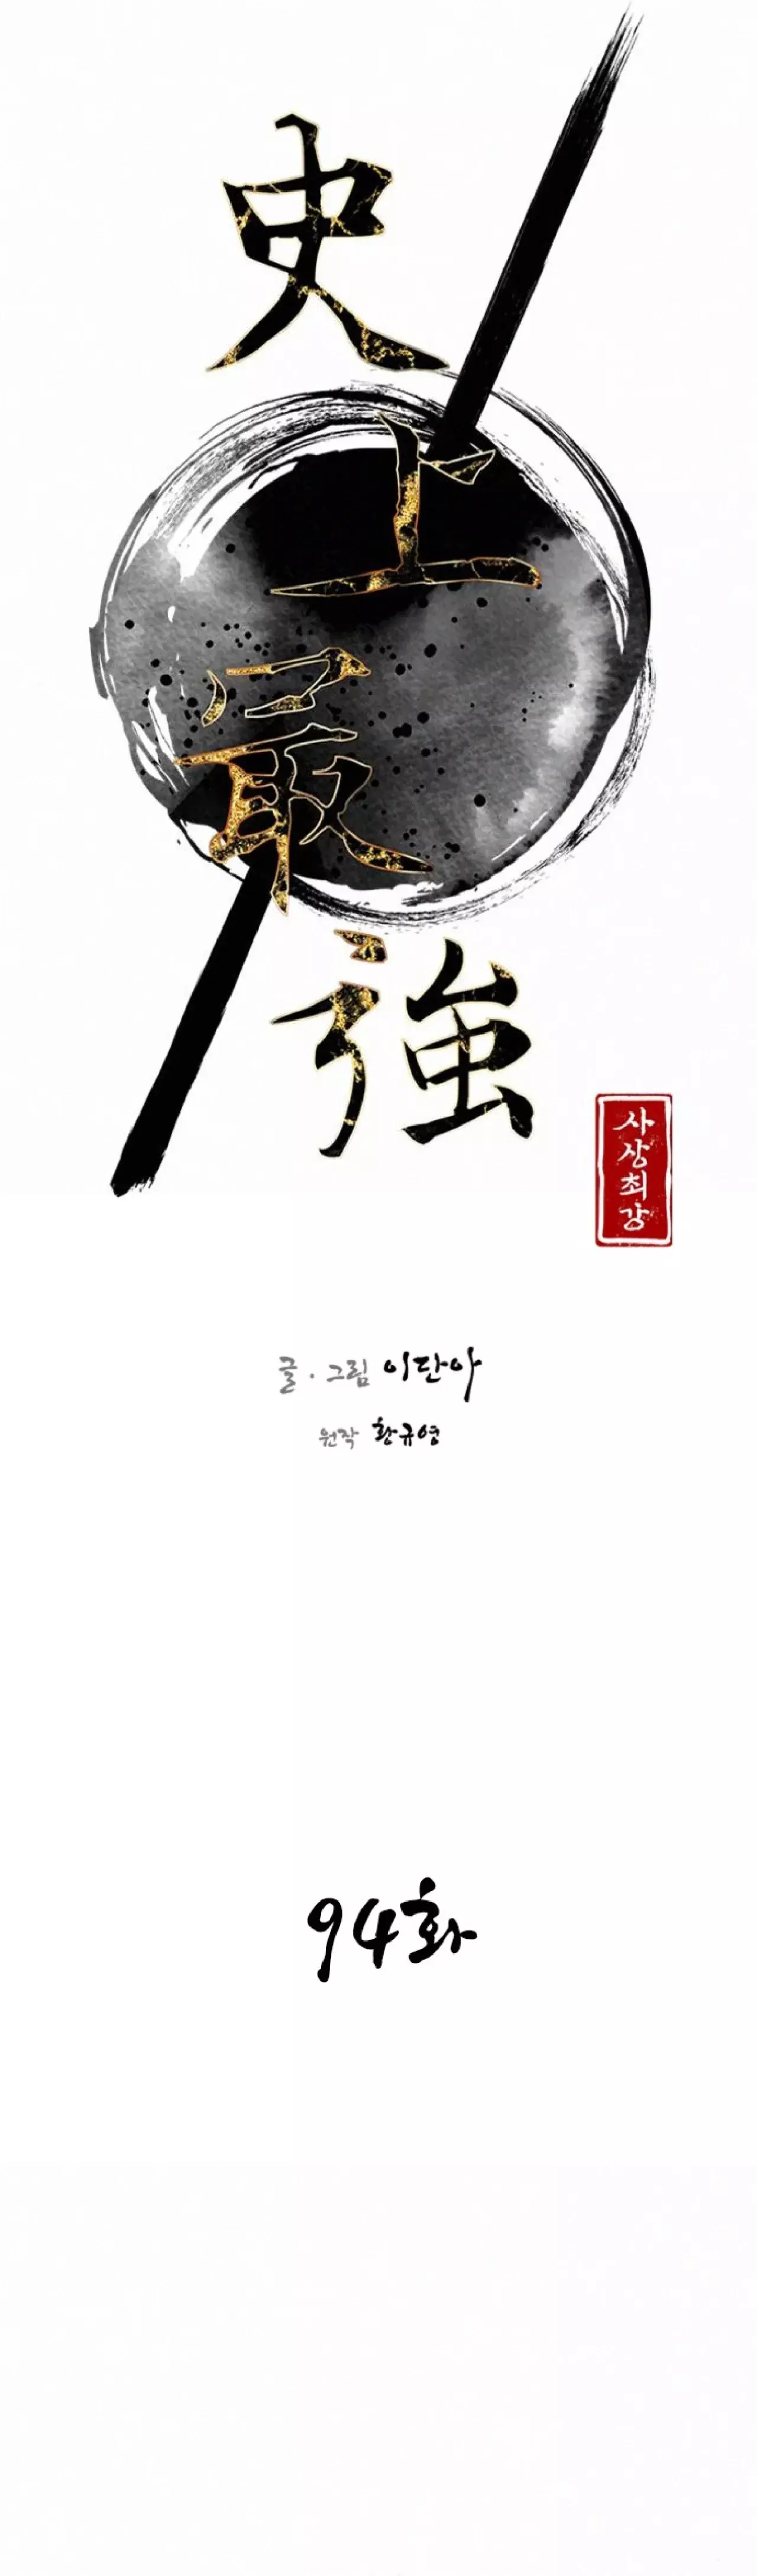 史
上
最
強
사상최강
글·그림 이단아
원작 황규영
94화